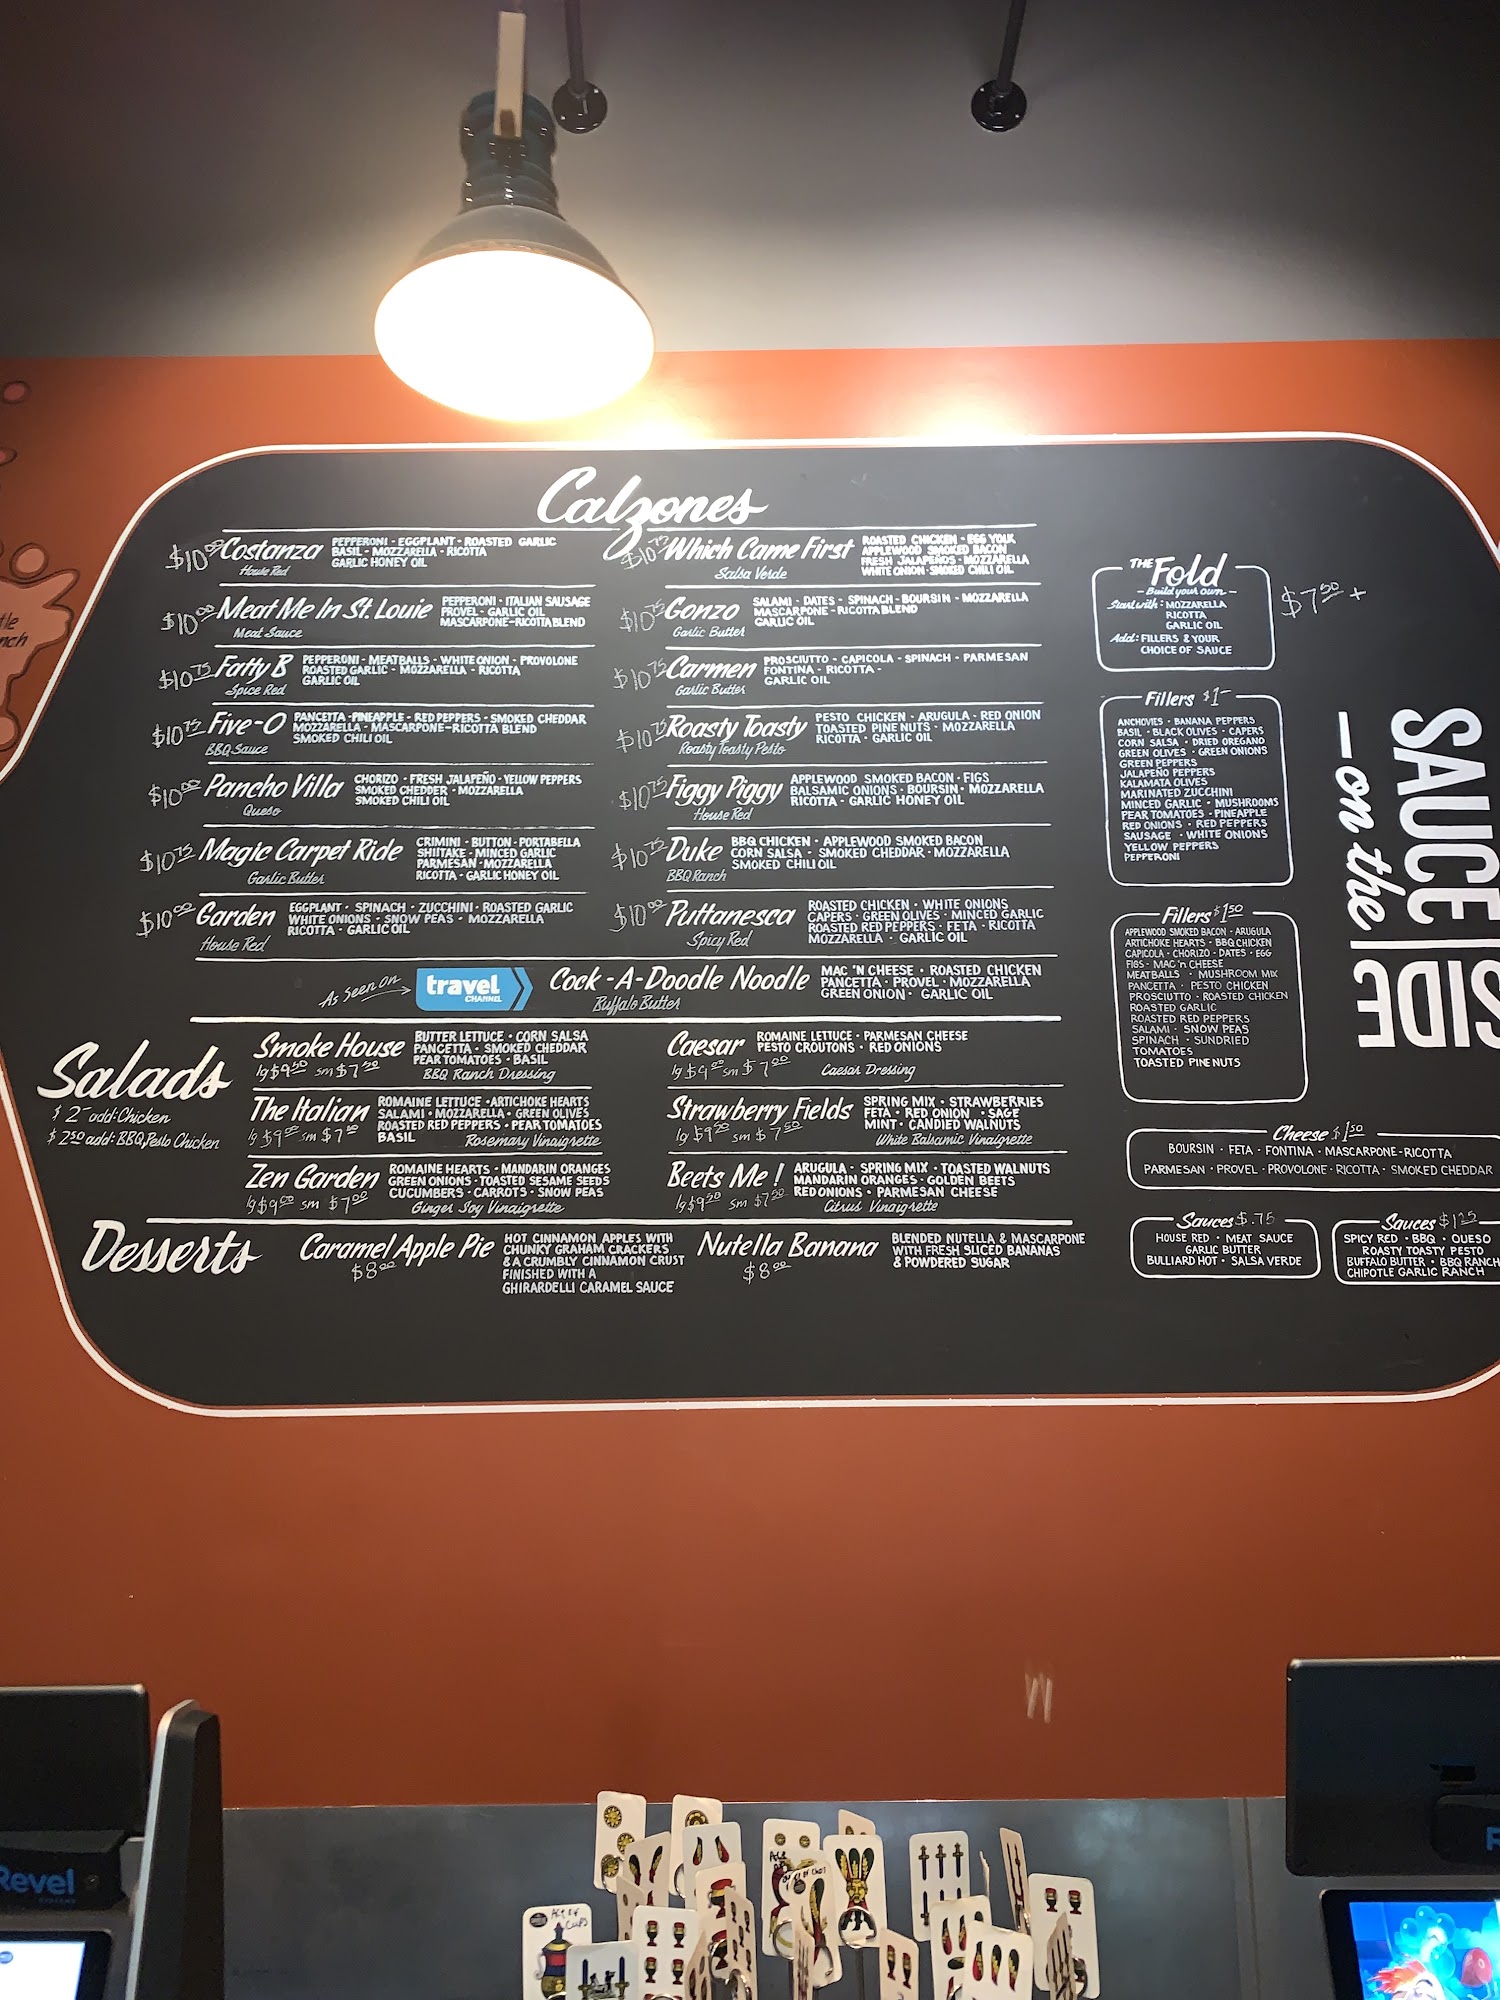 Calzones
$10.00 Costanza
House Red
PEPPERONI - EGGPLANT - ROASTED GARLIC
BASIL - MOZZARELLA - RICOTTA
GARLIC HONEY OIL
$10.00 Meat Me In St. Louie
Meat Sauce
PEPPERONI - ITALIAN SAUSAGE
PROVEL - GARLIC OIL
MASCARPONE-RICOTTA BLEND
$10.75 Fatty B
Spice Red
PEPPERONI - MEATBALLS - WHITE ONION - PROVOLONE
ROASTED GARLIC - MOZZARELLA - RICOTTA
GARLIC OIL
$10.75 Five-O
BBQ Sauce
PANCETTA - PINEAPPLE - RED PEPPERS - SMOKED CHEDDAR
MOZZARELLA - MASCARPONE-RICOTTA BLEND
SMOKED CHILI OIL
$10.00 Pancho Villa
Queso
CHORIZO - FRESH JALAPEÑO - YELLOW PEPPERS
SMOKED CHEDDER - MOZZARELLA
SMOKED CHILI OIL
$10.75 Magic Carpet Ride
Garlic Butter
CRIMINI - BUTTON - PORTABELLA
SHIITAKE - MINCED GARLIC
PARMESAN - MOZZARELLA
RICOTTA - GARLIC HONEY OIL
$10.00 Garden
House Red
EGGPLANT - SPINACH - ZUCCHINI - ROASTED GARLIC
WHITE ONIONS - SNOW PEAS - MOZZARELLA
RICOTTA - GARLIC OIL
$10.75 Which Came First
Salsa Verde
ROASTED CHICKEN - EGG YOLK
APPLEWOOD SMOKED BACON
FRESH JALAPEÑOS - MOZZARELLA
WHITE ONION - SMOKED CHILI OIL
$10.75 Gonzo
Garlic Butter
SALAMI - DATES - SPINACH - BOURSIN - MOZZARELLA
MASCARPONE - RICOTTA BLEND
GARLIC OIL
$10.75 Carmen
Garlic Butter
PROSCIUTTO - CAPICOLA - SPINACH - PARMESAN
FONTINA - RICOTTA -
GARLIC OIL
$10.75 Roasty Toasty
Roasty Toasty Pesto
PESTO CHICKEN - ARUGULA - RED ONION
TOASTED PINE NUTS - MOZZARELLA
RICOTTA - GARLIC OIL
$10.75 Figgy Piggy
House Red
APPLEWOOD SMOKED BACON - FIGS
BALSAMIC ONIONS - BOURSIN - MOZZARELLA
RICOTTA - GARLIC HONEY OIL
$10.75 Duke
BBQ Ranch
BBQ CHICKEN - APPLEWOOD SMOKED BACON
CORN SALSA - SMOKED CHEDDAR - MOZZARELLA
SMOKED CHILI OIL
$10.00 Puttanesca
Spicy Red
ROASTED CHICKEN - WHITE ONIONS
CAPERS - GREEN OLIVES - MINCED GARLIC
ROASTED RED PEPPERS - FETA - RICOTTA
MOZZARELLA - GARLIC OIL
As Seen on
travel
CHANNEL
Cock-A-Doodle Noodle
Buffalo Butter
MAC 'N CHEESE • ROASTED CHICKEN
PANCETTA • PROVEL • MOZZARELLA
GREEN ONION • GARLIC OIL
Salads
$2- add: Chicken
$2.50 add: BBQ, Pesto Chicken
Smoke House
lg $9.50 sm $7.50
BUTTER LETTUCE • CORN SALSA
PANCETTA • SMOKED CHEDDAR
PEAR TOMATOES • BASIL
BBQ Ranch Dressing
The Italian
lg $9.00 sm $7.00
ROMAINE LETTUCE • ARTICHOKE HEARTS
SALAMI • MOZZARELLA • GREEN OLIVES
ROASTED RED PEPPERS • PEAR TOMATOES
BASIL
Rosemary Vinaigrette
Zen Garden
lg $9.00 sm $7.00
ROMAINE HEARTS • MANDARIN ORANGES
GREEN ONIONS • TOASTED SESAME SEEDS
CUCUMBERS • CARROTS • SNOW PEAS
Ginger Soy Vinaigrette
Caesar
lg $9.00 sm $7.00
ROMAINE LETTUCE • PARMESAN CHEESE
PESTO CROUTONS • RED ONIONS
Caesar Dressing
Strawberry Fields
lg $9.50 sm $7.50
SPRING MIX • STRAWBERRIES
FETA • RED ONION • SAGE
MINT • CANDIED WALNUTS
White Balsamic Vinaigrette
Beets Me!
lg $9.50 sm $7.50
ARUGULA • SPRING MIX • TOASTED WALNUTS
MANDARIN ORANGES • GOLDEN BEETS
RED ONIONS • PARMESAN CHEESE
Citrus Vinaigrette
Desserts
Caramel Apple Pie
$8.00
HOT CINNAMON APPLES WITH
CHUNKY GRAHAM CRACKERS
& A CRUMBLY CINNAMON CRUST
FINISHED WITH A
GHIRARDELLI CARAMEL SAUCE
Nutella Banana
$8.00
BLENDED NUTELLA & MASCARPONE
WITH FRESH SLICED BANANAS
& POWDERED SUGAR
THE Fold
- Build your own -
$7.50 +
Start with: MOZZARELLA
RICOTTA
GARLIC OIL
Add: FILLERS & YOUR
CHOICE OF SAUCE
Fillers $1-
ANCHOVIES • BANANA PEPPERS
BASIL • BLACK OLIVES • CAPERS
CORN SALSA • DRIED OREGANO
GREEN OLIVES • GREEN ONIONS
GREEN PEPPERS
JALAPEÑO PEPPERS
KALAMATA OLIVES
MARINATED ZUCCHINI
MINCED GARLIC • MUSHROOMS
PEAR TOMATOES • PINEAPPLE
RED ONIONS • RED PEPPERS
SAUSAGE • WHITE ONIONS
YELLOW PEPPERS
PEPPERONI
Fillers $1.50
APPLEWOOD SMOKED BACON • ARUGULA
ARTICHOKE HEARTS • BBQ CHICKEN
CAPICOLA • CHORIZO • DATES • EGG
FIGS • MAC 'n CHEESE
MEATBALLS • MUSHROOM MIX
PANCETTA • PESTO CHICKEN
PROSCIUTTO • ROASTED CHICKEN
ROASTED GARLIC
ROASTED RED PEPPERS
SALAMI • SNOW PEAS
SPINACH • SUNDRIED
TOMATOES
TOASTED PINE NUTS
Cheese $1.50
BOURSIN • FETA • FONTINA • MASCARPONE-RICOTTA
PARMESAN • PROVEL • PROVOLONE • RICOTTA • SMOKED CHEDDAR
Sauces $.75
HOUSE RED • MEAT SAUCE
GARLIC BUTTER
BULLIARD HOT • SALSA VERDE
Sauces $1.25
SPICY RED • BBQ • QUESO
ROASTY TOASTY PESTO
BUFFALO BUTTER • BBQ RANCH
CHIPOTLE GARLIC RANCH
SAUCE
on the
SIDE
Revel